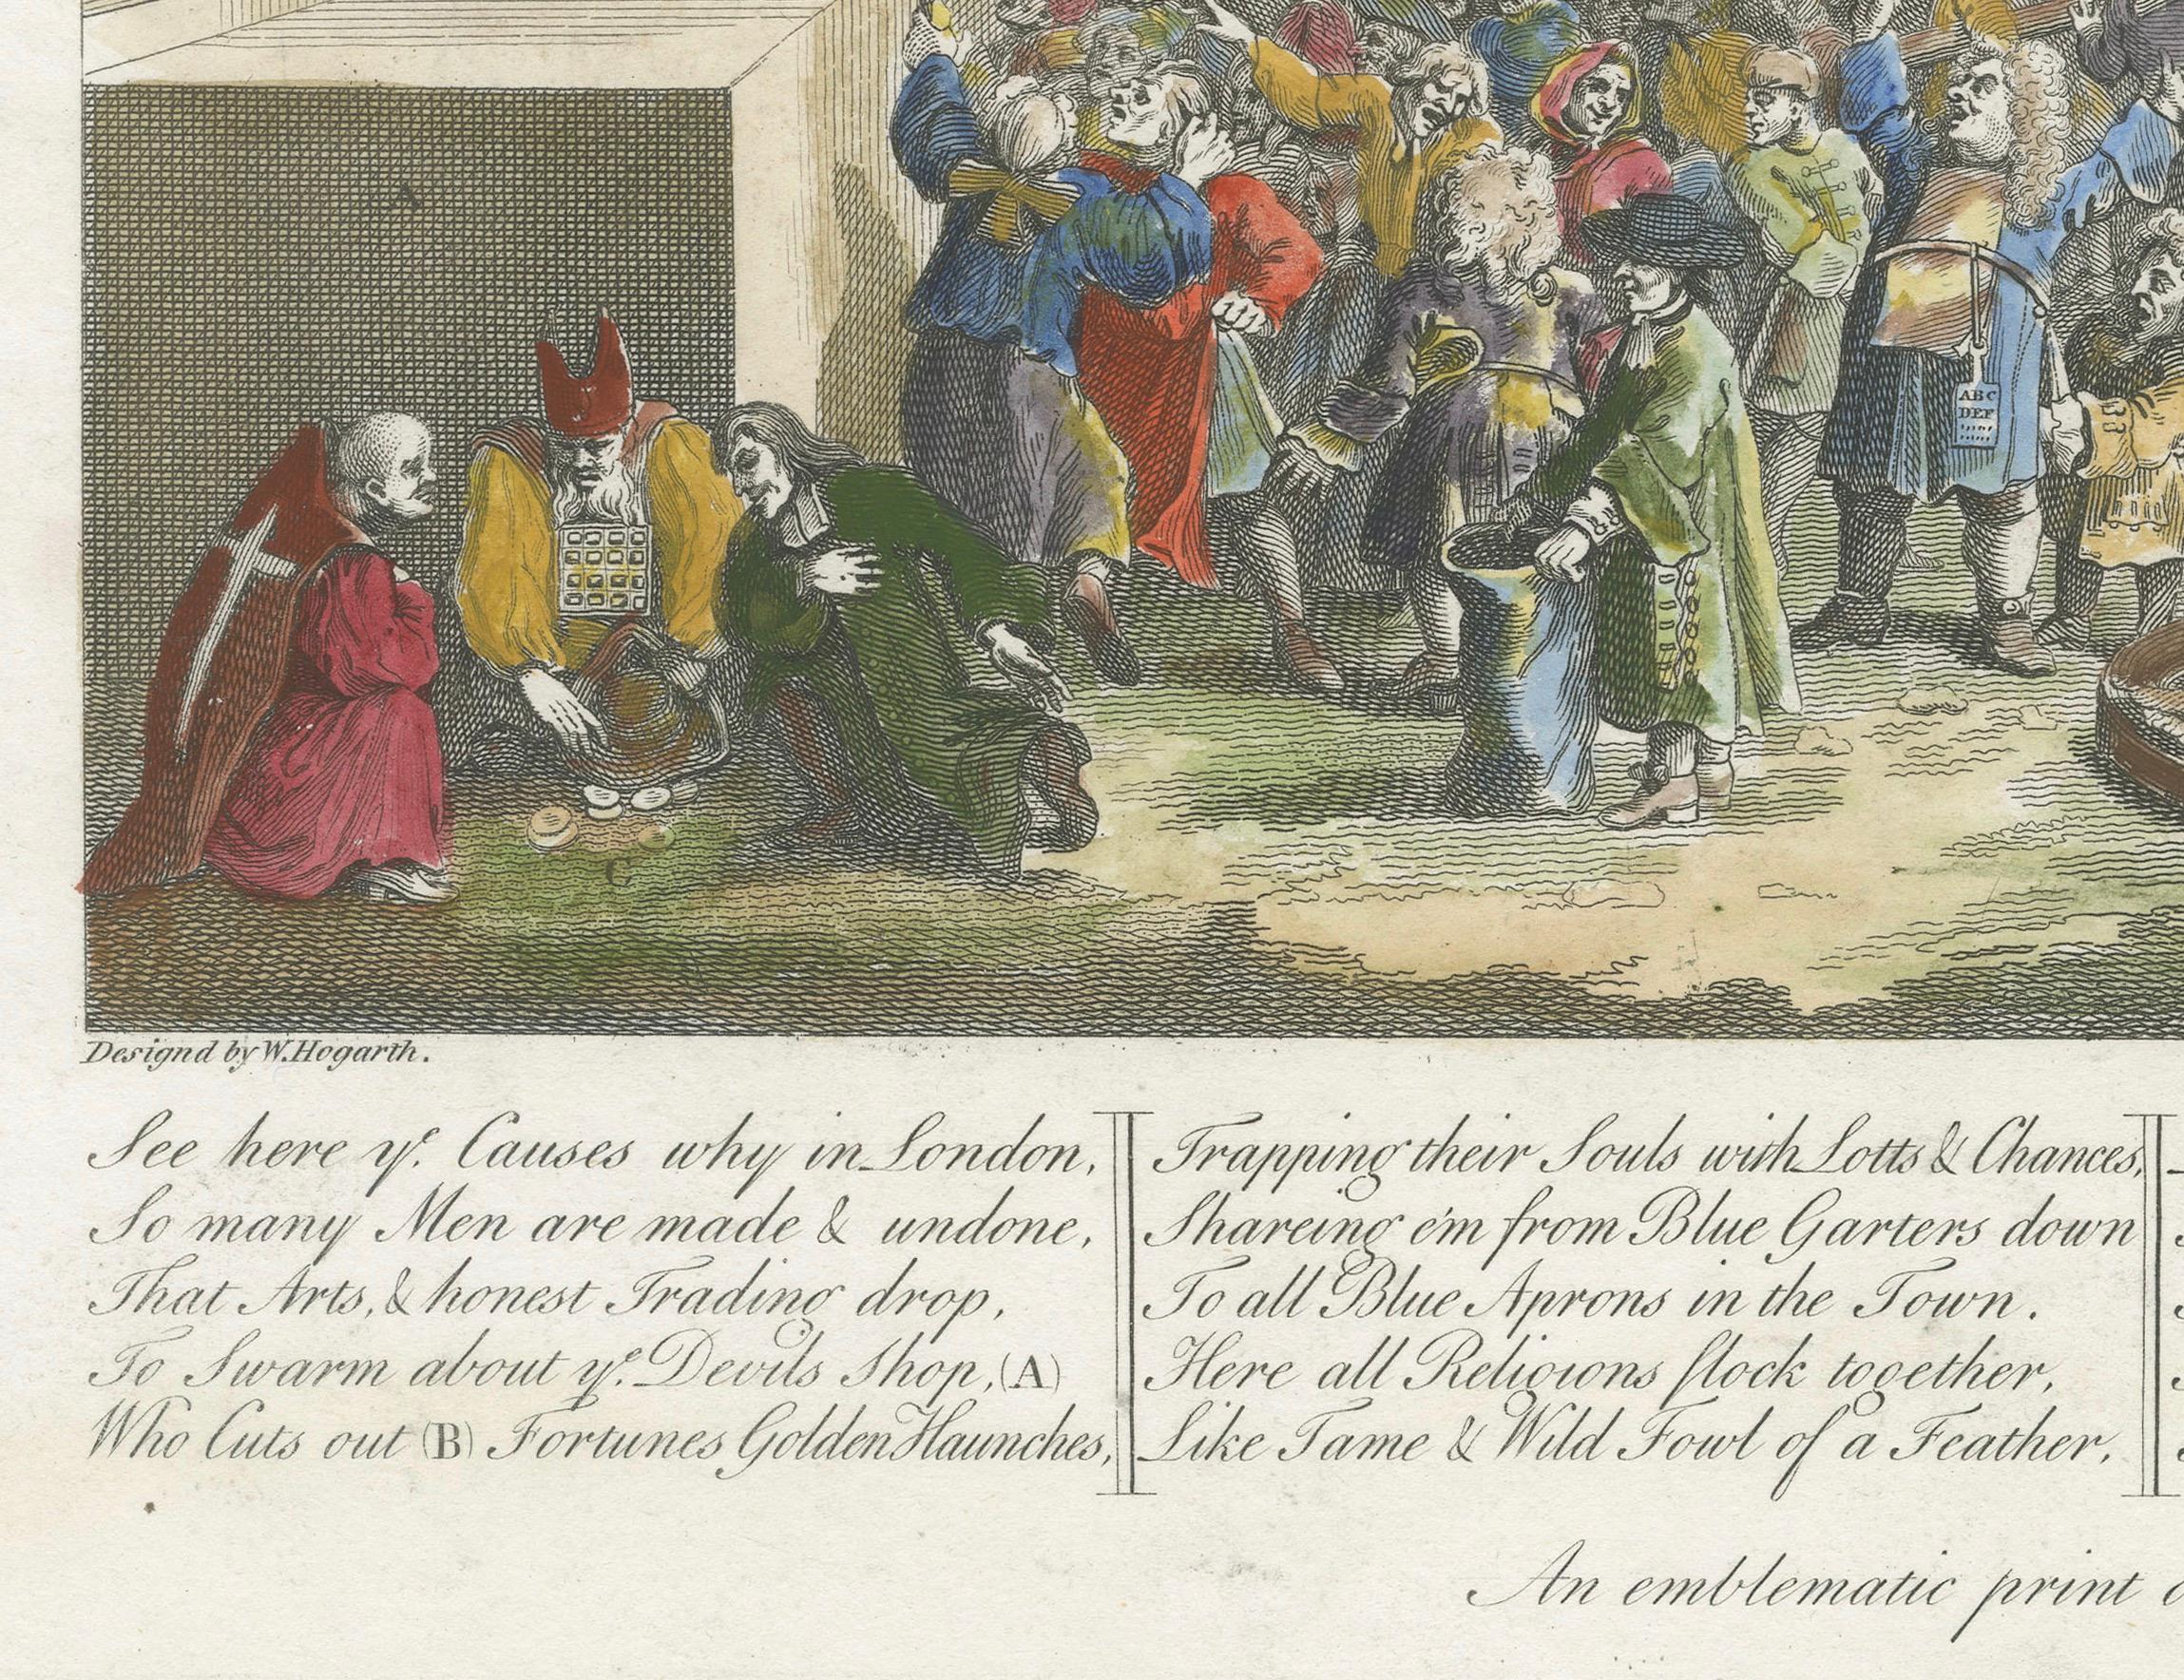 A
ABC
DEF
C
Designd by W. Hogarth.
See here yᵉ. Causes why in London,
So many Men are made & undone,
That Arts, & honest Trading drop,
To Swarm about yᵉ. Devils Shop, (A)
Who Cuts out (B) Fortunes Golden Haunches,
Trapping their Souls with Lotts & Chances,
Shareing e'm from Blue Garters down
To all Blue Aprons in the Town.
Here all Religions flock together,
Like Tame & Wild Fowl of a Feather,
An emblematic print